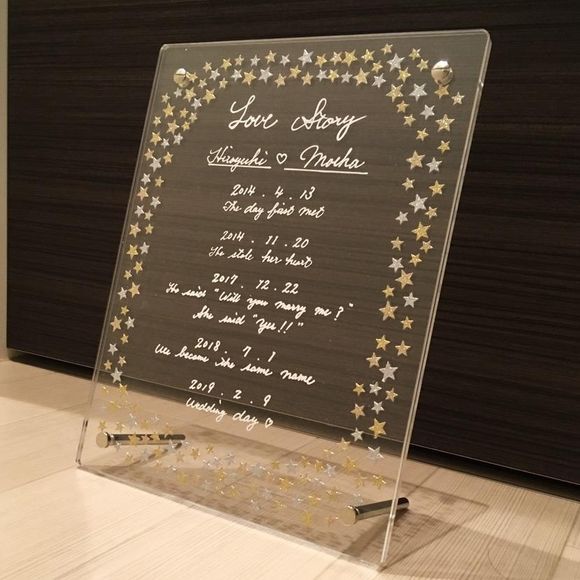 Love Story
Hiroyuki ♡ Moeka
2014 . 4 . 13
The day first met
2014 . 11 . 20
He stole her heart
2017 . 12 . 22
He said "Will you marry me?"
She said "Yes!!"
2018 . 7 . 7
We became the same name
2019 . 2 . 9
Wedding day ♡